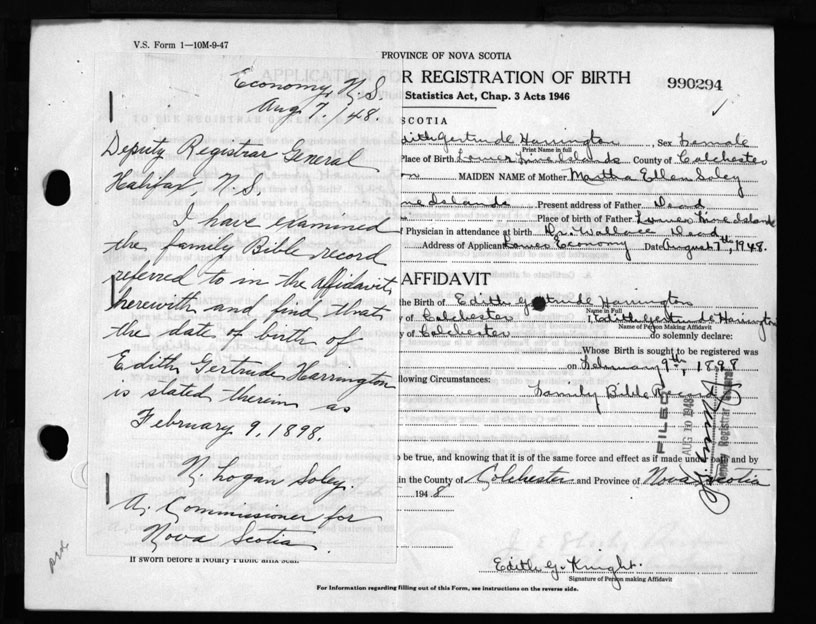 V.S. Form 1—10M-9-47
PROVINCE OF NOVA SCOTIA
R REGISTRATION OF BIRTH
990294
Statistics Act, Chap. 3 Acts 1946
Economy, N.S.
Aug 7, /48.
Deputy Registrar General
Halifax, N.S.
I have examined
the family Bible record
referred to in the affidavit
herewith and find that
the date of birth of
Edith Gertrude Harrington
is stated therein as
February 9, 1898.
N. Logan Soley.
A Commissioner for
Nova Scotia
SCOTIA
dith Gertrude Harrington, Sex Female
Print Name in full
Place of Birth Lower Five Islands County of Colchester
on MAIDEN NAME of Mother Martha Ellen Soley
ve Islands Present address of Father Dead
Place of birth of Father Lower Five Islands
f Physician in attendance at birth Dr. Wallace Dead
Address of Applicant Lower Economy Date August 7th, 1948.
AFFIDAVIT
the Birth of Edith Gertrude Harrington
Name in Full
y of Colchester I, Edith Gertrude Harrington
Name of Person Making Affidavit
y of Colchester do solemnly declare:
Whose Birth is sought to be registered was
on February 9th, 1898
llowing Circumstances: Family Bible Record
FILED
AUG 10 1948
Deputy Registrar General
o be true, and knowing that it is of the same force and effect as if made under oath and by
in the County of Colchester and Province of Nova Scotia
1948
If sworn before a Notary Public affix seal.
Edith G. Knight.
Signature of Person making Affidavit
For Information regarding filling out of this Form, see instructions on the reverse side.